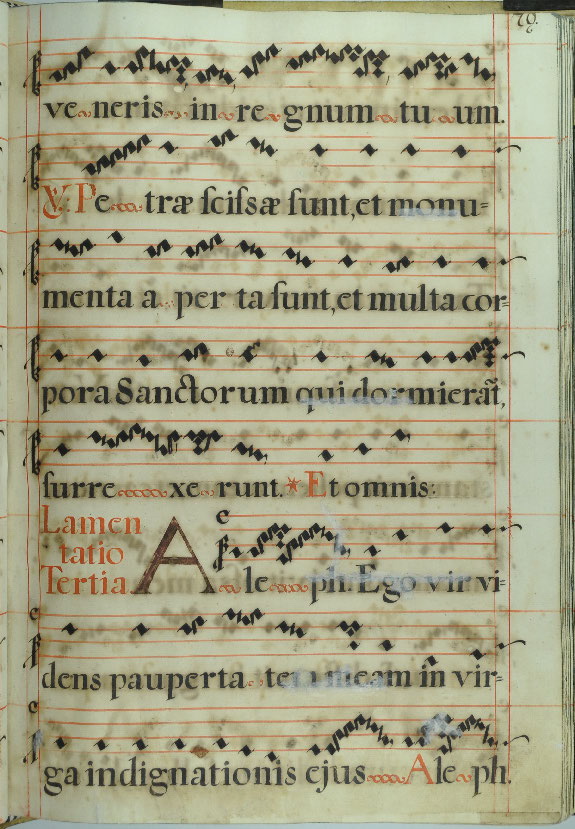 veneris in regnum tuum.
℣ Petræ scissæ sunt, et monu=
menta aperta sunt, et multa cor=
pora Sanctorum qui dormierāt,
surrexerunt. * Et omnis:
Lamen
tatio
Tertia
Aleph. Ego vir vi=
dens paupertatem meam in vir=
ga indignationis ejus Aleph.